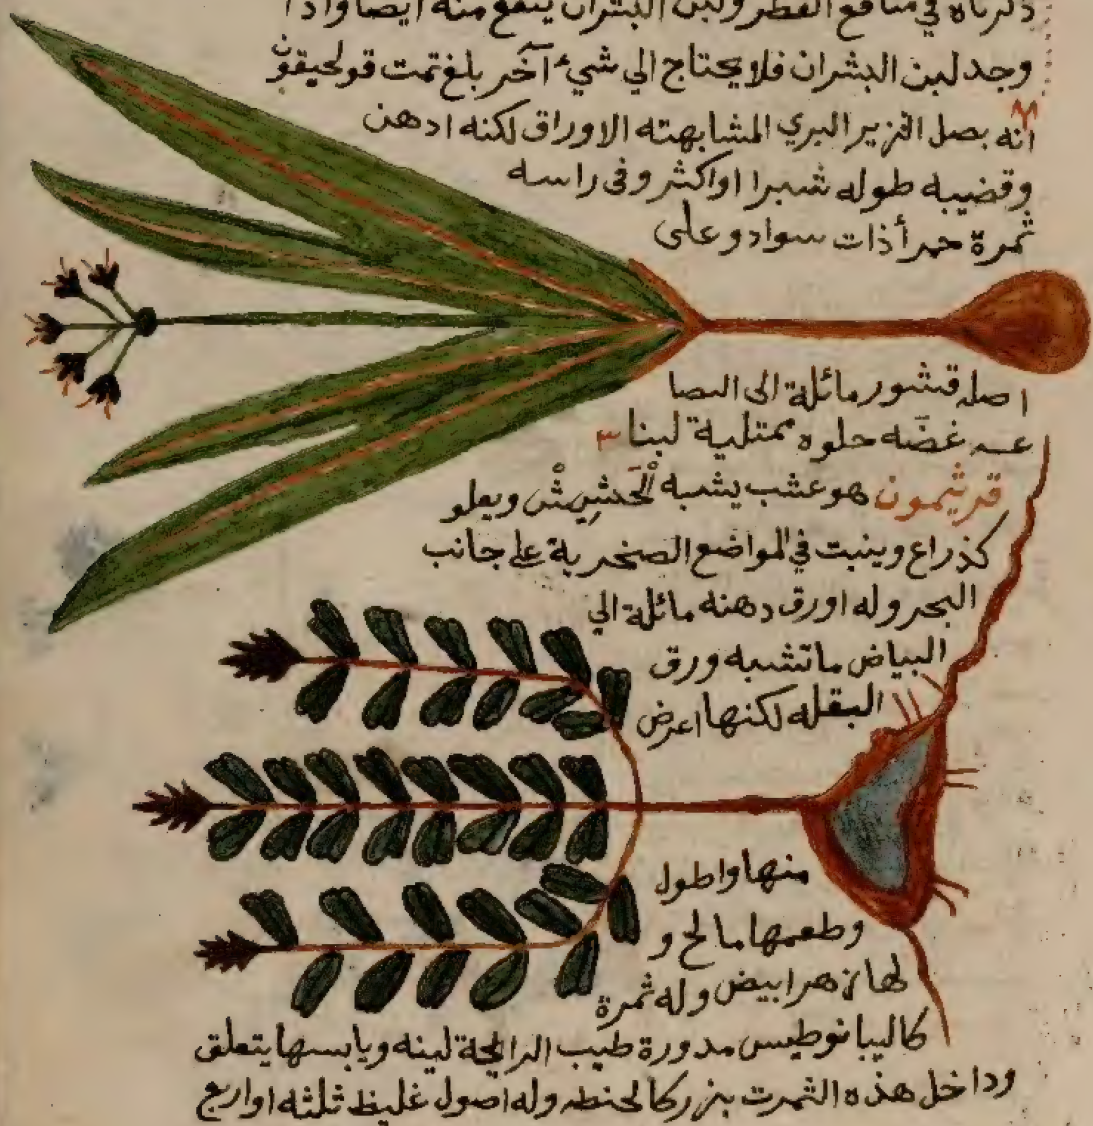 ذكرناه في منافع القطر ولبن البشران ينفع منه ايضا واذا
وجد لبن البشران فلا يحتاج الي شيء آخر بلغ تمت قولحيقون
انه بصل الزير البري المشابهته الاوراق لكنه ادهن
وقضيبه طوله شبرا او اكثر وفى راسه
ثمرة حمرأ ذات سواد وعلى
اصله قشور مائلة الى البصا
عـه غضّه حلوه ممتلية لبنا
قريثمون هو عشب يشبه الْحَشِيشْ ويعلو
كذراع وينبت في المواضع الصخرية على جانب
البحر وله اورق دهنه مائلة الي
البياض ما تشبه ورق
البقله لكنها اعرض
منها واطول
وطعمها مالح و
لها زهر ابيض وله ثمرة
كاليبانوطيس مدورة طيب الرايحة لينه ويابسها يتعلق
وداخل هذه الثمرت بزر كالحنطه وله اصول غليظ ثلثه او اربع